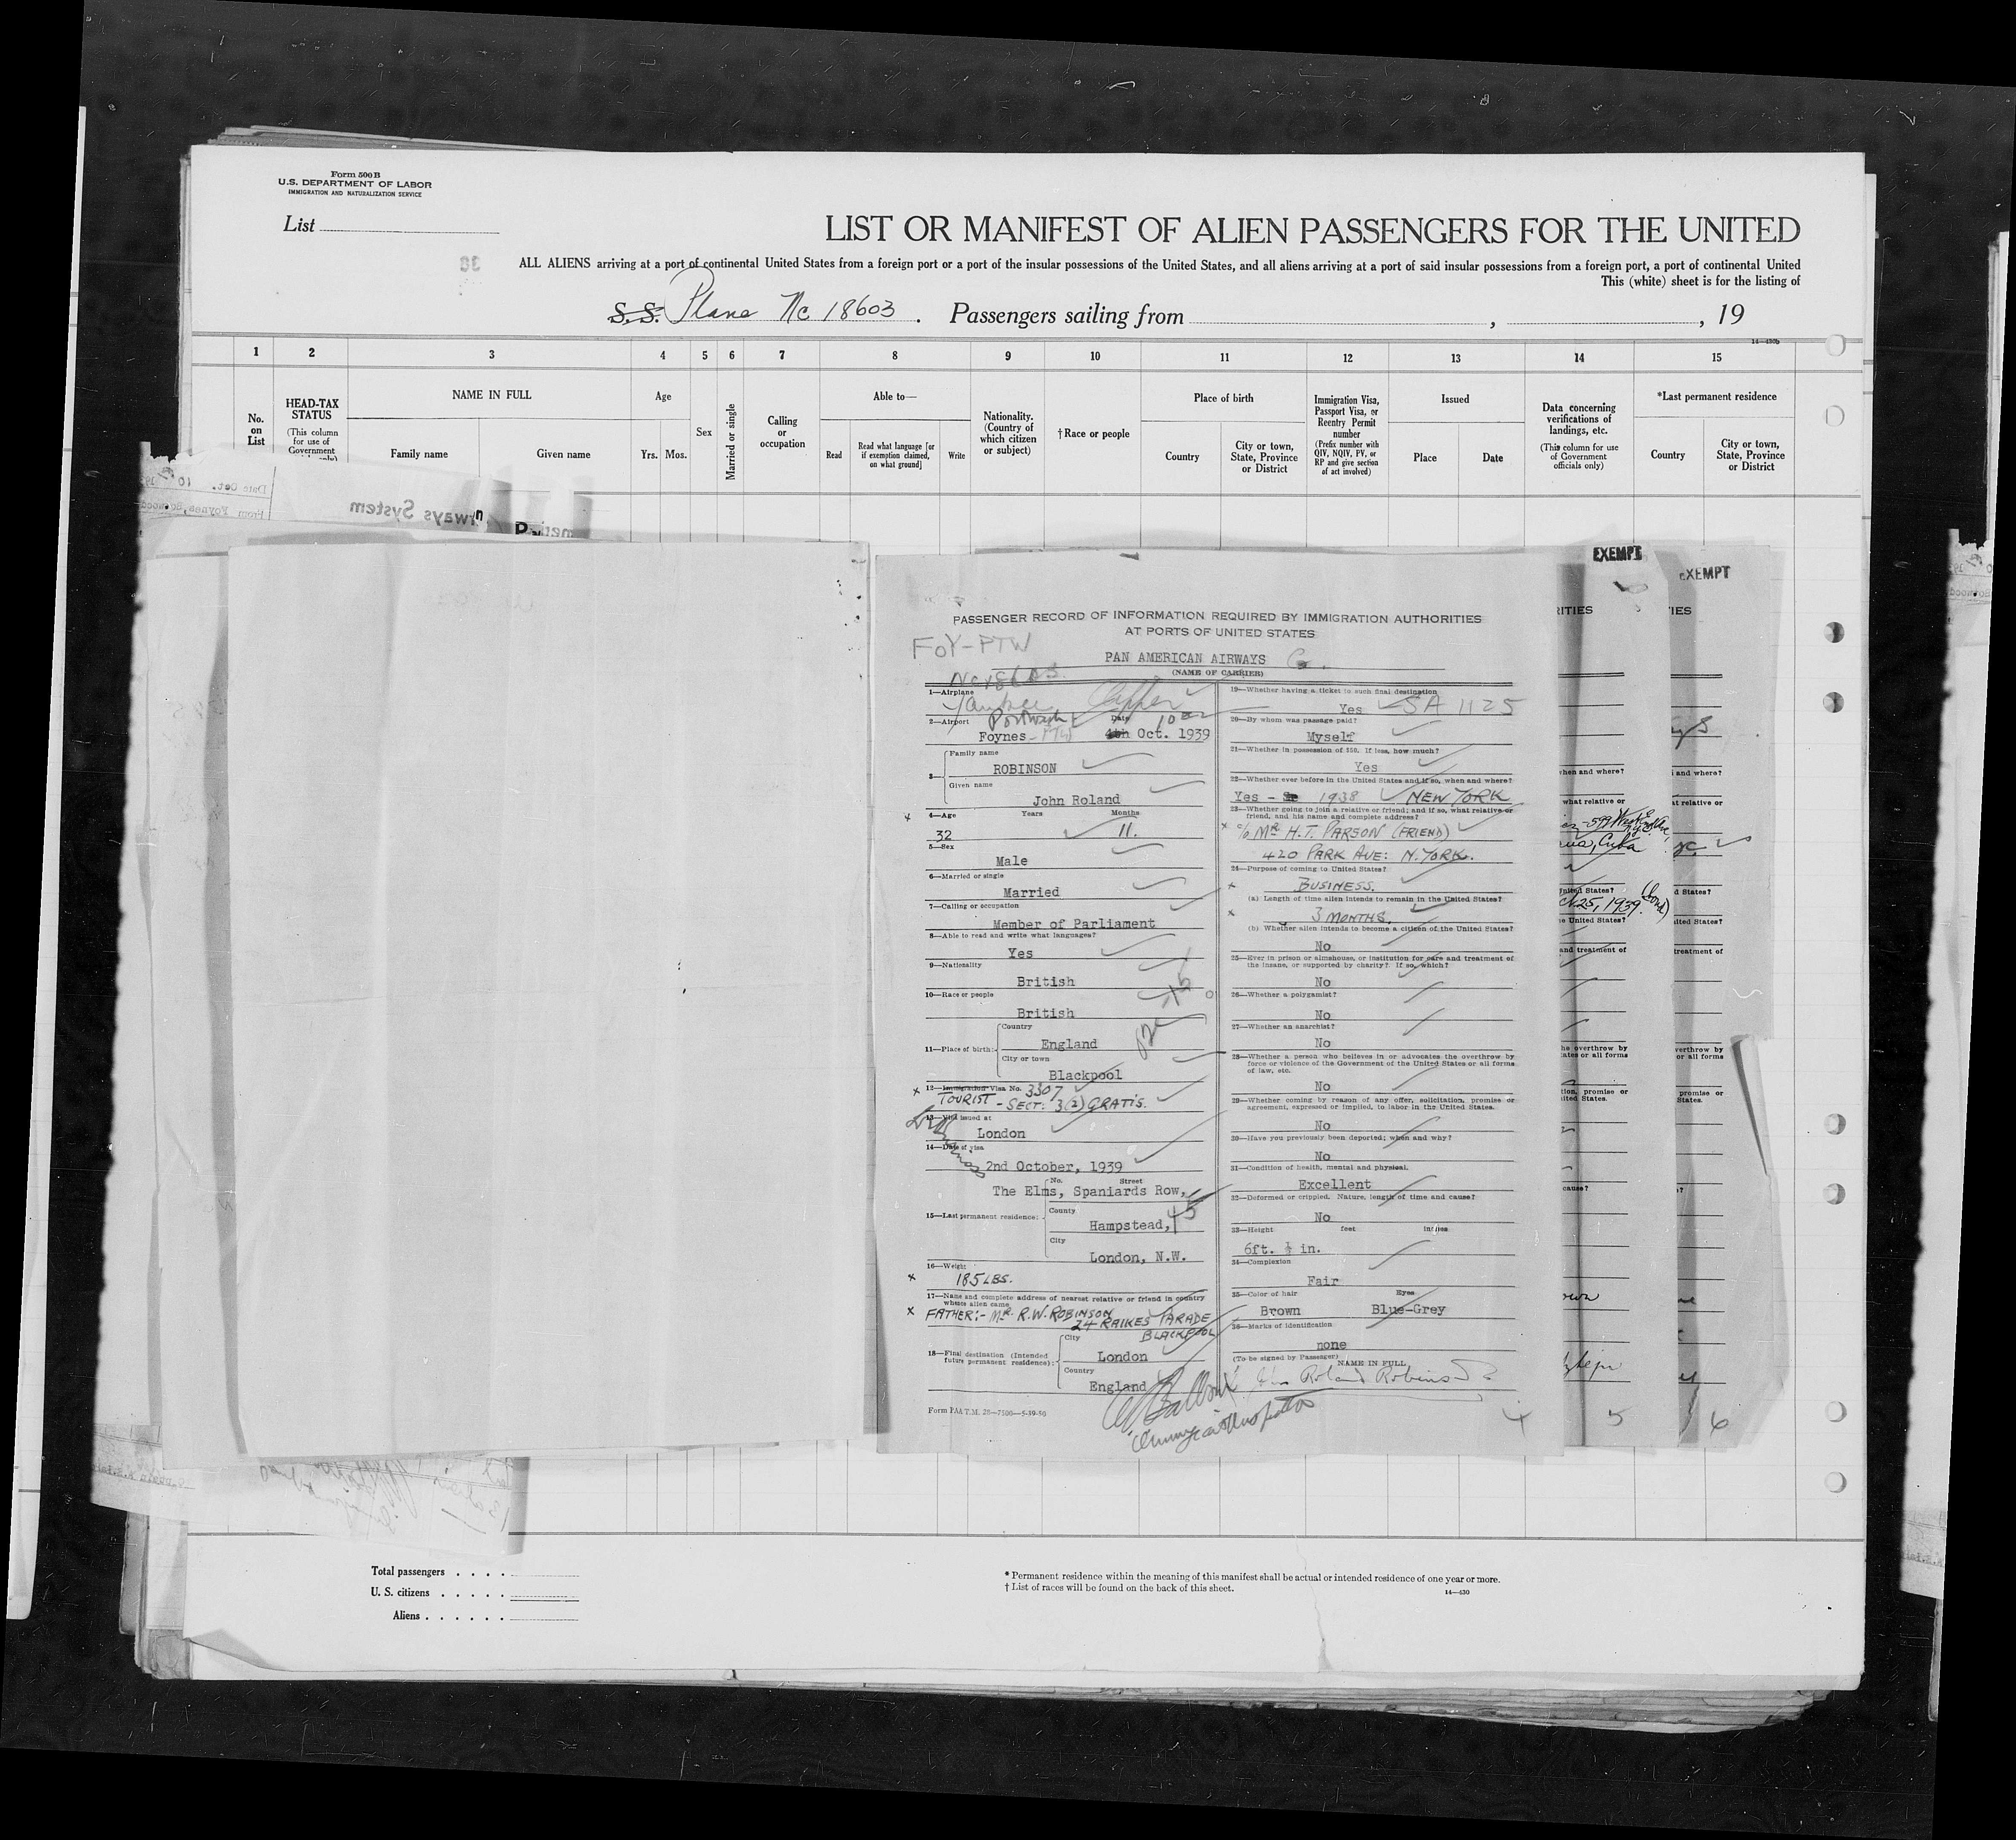 Form 500 B
U.S. DEPARTMENT OF LABOR
IMMIGRATION AND NATURALIZATION SERVICE
List
LIST OR MANIFEST OF ALIEN PASSENGERS FOR THE UNITED
ALL ALIENS arriving at a port of continental United States from a foreign port or a port of the insular possessions of the United States, and all aliens arriving at a port of said insular possessions from a foreign port, a port of continental United
This (white) sheet is for the listing of
S.S. Plane Nc 18603. Passengers sailing from , , 19
14—430b
1 2 3 4 5 6 7 8 9 10 11 12 13 14 15
No. on List
HEAD-TAX STATUS
(This column for use of Government
NAME IN FULL
Family name
Given name
Age
Yrs. Mos.
Sex
Married or single
Calling or occupation
Able to—
Read
Read what language [or if exemption claimed, on what ground]
Write
Nationality. (Country of which citizen or subject)
†Race or people
Place of birth
Country
City or town, State, Province or District
Immigration Visa, Passport Visa, or Reentry Permit number
(Prefix number with QIV, NQIV, PV, or RP and give section of act involved)
Issued
Place
Date
Data concerning verifications of landings, etc.
(This column for use of Government officials only)
*Last permanent residence
Country
City or town, State, Province or District
Date Oct. 10
From Foynes,
EXEMPT
EXEMPT
PASSENGER RECORD OF INFORMATION REQUIRED BY IMMIGRATION AUTHORITIES
AT PORTS OF UNITED STATES
FOY-PTW
PAN AMERICAN AIRWAYS Co.
(NAME OF CARRIER)
Nc 18603
1—Airplane
Yankee Clipper
2—Airport Port Wash Date
Foynes - PTW 4th Oct. 1939
3— Family name
ROBINSON
Given name
John Roland
4—Age Years Months
32 11.
5—Sex
Male
6—Married or single
Married
7—Calling or occupation
Member of Parliament
8—Able to read and write what languages?
Yes
9—Nationality
British
10—Race or people
British
11—Place of birth: Country
England
City or town
Blackpool
12—Immigration Visa No. 3307
TOURIST - SECT: 3(2) GRATIS.
13—Visa issued at
London
14—Date of visa
2nd October, 1939
15—Last permanent residence: No. Street
The Elms, Spaniards Row,
County
Hampstead,
City
London, N.W.
16—Weight
185 LBS.
17—Name and complete address of nearest relative or friend in country whence alien came
FATHER:- MR. R.W. ROBINSON
24 RAIKES PARADE
BLACKPOOL
18—Final destination (Intended future permanent residence): City
London
Country
England
Form PAA T.M. 28—7500—5-19-50
19—Whether having a ticket to such final destination
Yes SA 1125
20—By whom was passage paid?
Myself
21—Whether in possession of $50. If less, how much?
Yes
22—Whether ever before in the United States and if so, when and where?
Yes - 1938 NEW YORK
23—Whether going to join a relative or friend; and if so, what relative or friend, and his name and complete address?
c/o MR H.T. PARSON (FRIEND)
420 PARK AVE: N.YORK.
24—Purpose of coming to United States?
BUSINESS.
(a) Length of time alien intends to remain in the United States?
3 MONTHS.
(b) Whether alien intends to become a citizen of the United States?
No
25—Ever in prison or almshouse, or institution for care and treatment of the insane, or supported by charity? If so, which?
No
26—Whether a polygamist?
No
27—Whether an anarchist?
No
28—Whether a person who believes in or advocates the overthrow by force or violence of the Government of the United States or all forms of law, etc.
No
29—Whether coming by reason of any offer, solicitation, promise or agreement, expressed or implied, to labor in the United States.
No
30—Have you previously been deported; when and why?
No
31—Condition of health, mental and physical.
Excellent
32—Deformed or crippled. Nature, length of time and cause?
No
33—Height feet inches
6ft. ½ in.
34—Complexion
Fair
35—Color of hair Eyes
Brown Blue-Grey
36—Marks of identification
none
(To be signed by Passenger) NAME IN FULL
John Roland Robinson
4 5 6
Total passengers
U. S. citizens
Aliens
* Permanent residence within the meaning of this manifest shall be actual or intended residence of one year or more.
† List of races will be found on the back of this sheet.
14—430